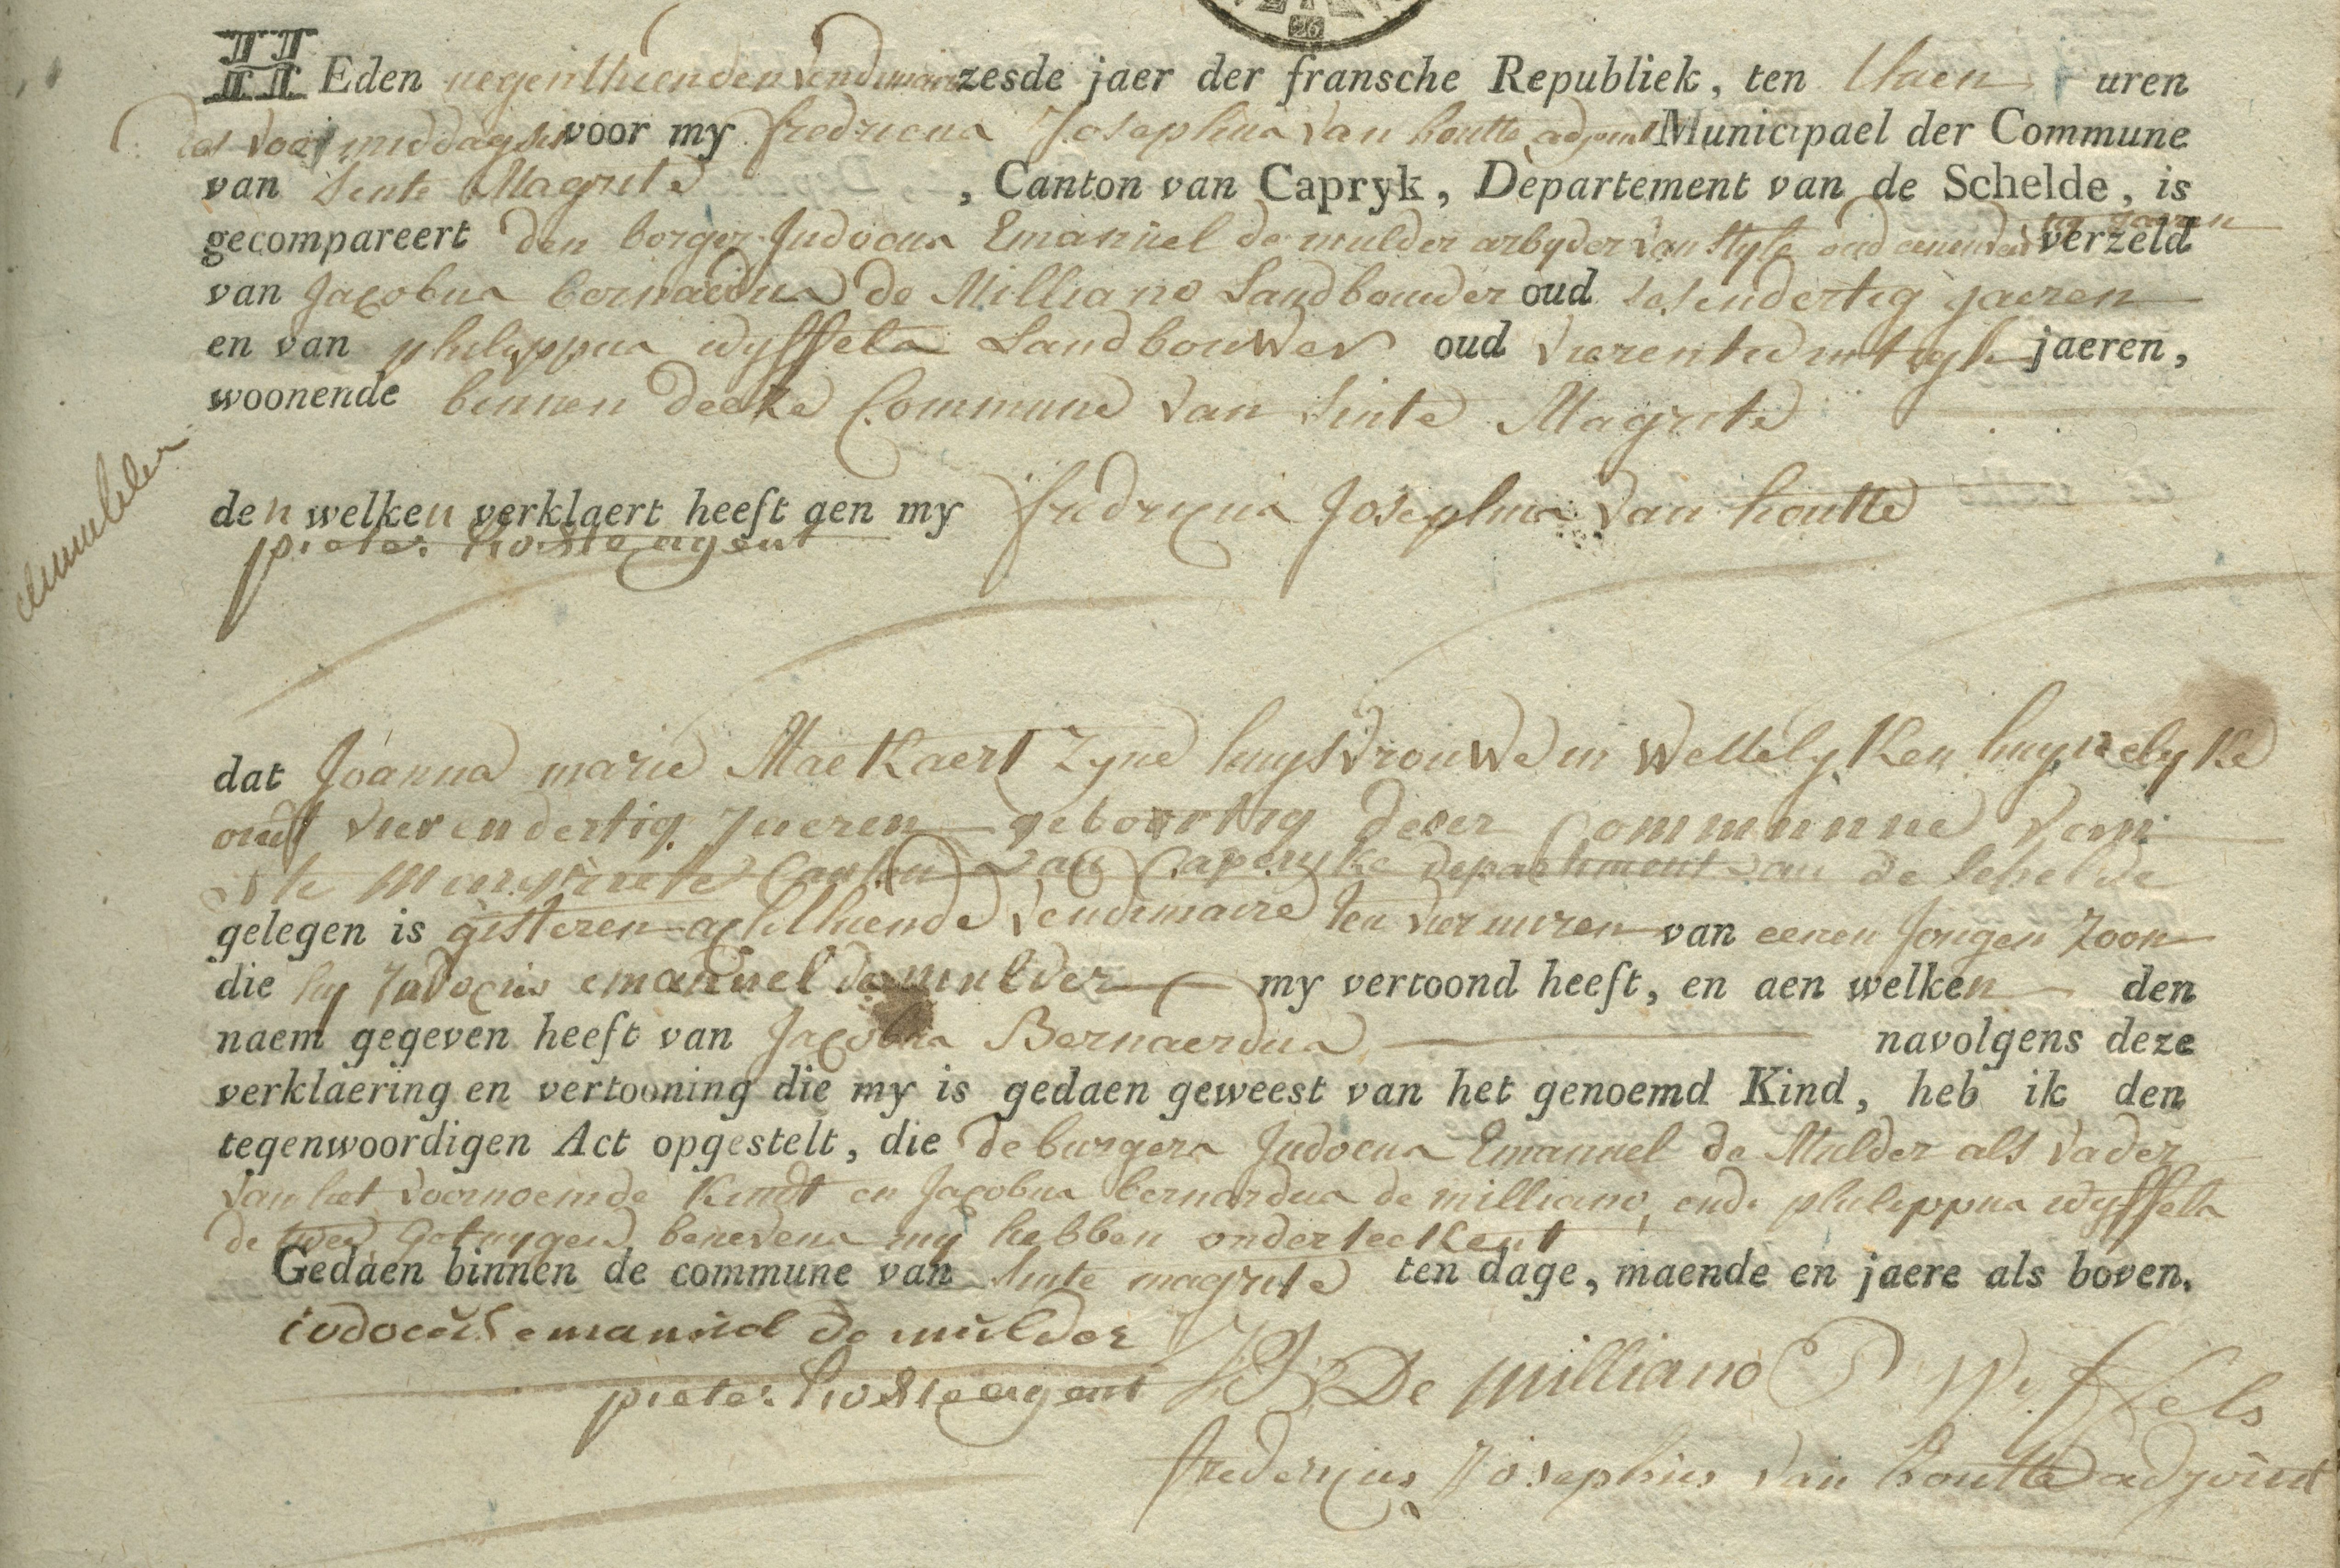 26
HEden negenthienden vendimaire zesde jaer der fransche Republiek, ten thien uren
des voormiddaghs voor my fredricus Josephus van houtte adjoint Municipael der Commune
van Sinte Magrite, Canton van Capryk, Departement van de Schelde, is
gecompareert den borger Judocus Emanuel de mulder arbyder van style oud eenen jaeren verzeld
van Jacobus bernardus de Milliano Landbouder oud sesendertig jaeren
en van philippus wyffels Landbouwer oud vierentwintigh jaeren,
woonende binnen deeze Commune van Sinte Magrite
demulder
den welken verklaert heeft aen my fredricus Josephus van houtte
pieter agent
dat Joanna marie Maekaert zyne huysvrouwe in wettelyken huywelyke
oudt vierendertig Jaeren geboortig deser Communne van
ste Margriete Canton van Capryke departement van de schelde
gelegen is gisteren achthiende vendimaire ten vier uuren van eenen Jongen Zoon
die hy Judocus emanuel de mulder my vertoond heeft, en aen welken den
naem gegeven heeft van Jacobus Bernaerdus navolgens deze
verklaering en vertooning die my is gedaen geweest van het genoemd Kind, heb ik den
tegenwoordigen Act opgestelt, die de burgers Judocus Emanuel de Mulder als vader
van het voornoemde Kindt en Jacobus bernardus de milliano, ende philippus wyffels
de twee Getuygen, benevens my hebben onderteekent
Gedaen binnen de commune van Sinte magrite ten dage, maende en jaere als boven.
iudocus emanuel de mulder
pieter agent JB De Milliano P Wyffels
fredericus Josephus van houtte adjoint